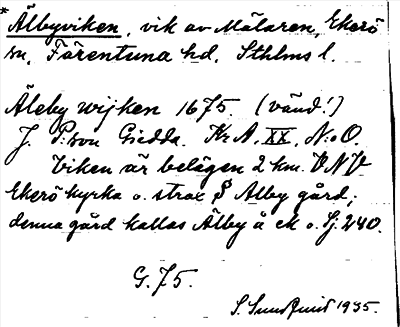 * Älbyviken, vik av Mälaren, Ekerö
sn, Färentuna hd, Sthlms l.
Äleby wijken 1675. (vänd!)
J. P:son Giedda. Kr A, XX, N:o O.
Viken är belägen 2 km. VNV
Ekerö kyrka o. strax S Älby gård;
denna gård kallas Älby å ek o. Sj. 240.
G. 75.
S. Sundqvist 1935.